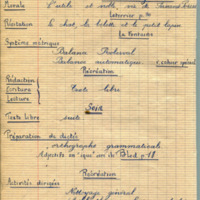 Morale L'utile et
Letourrier p.
Récitation Le chat, la belette et le petit lapin
La Fontaine
Système métrique
Balance Roberval
Balance automatique
Récréation
Rédaction
Ecriture Texte libre
Lecture
Soir
Texte libre suite
Préparation de dictée
orthographe grammaticale
Adjectifs en "que" ou "c" Bled p. 18
Récréation
Activités dirigées
Nettoyage général